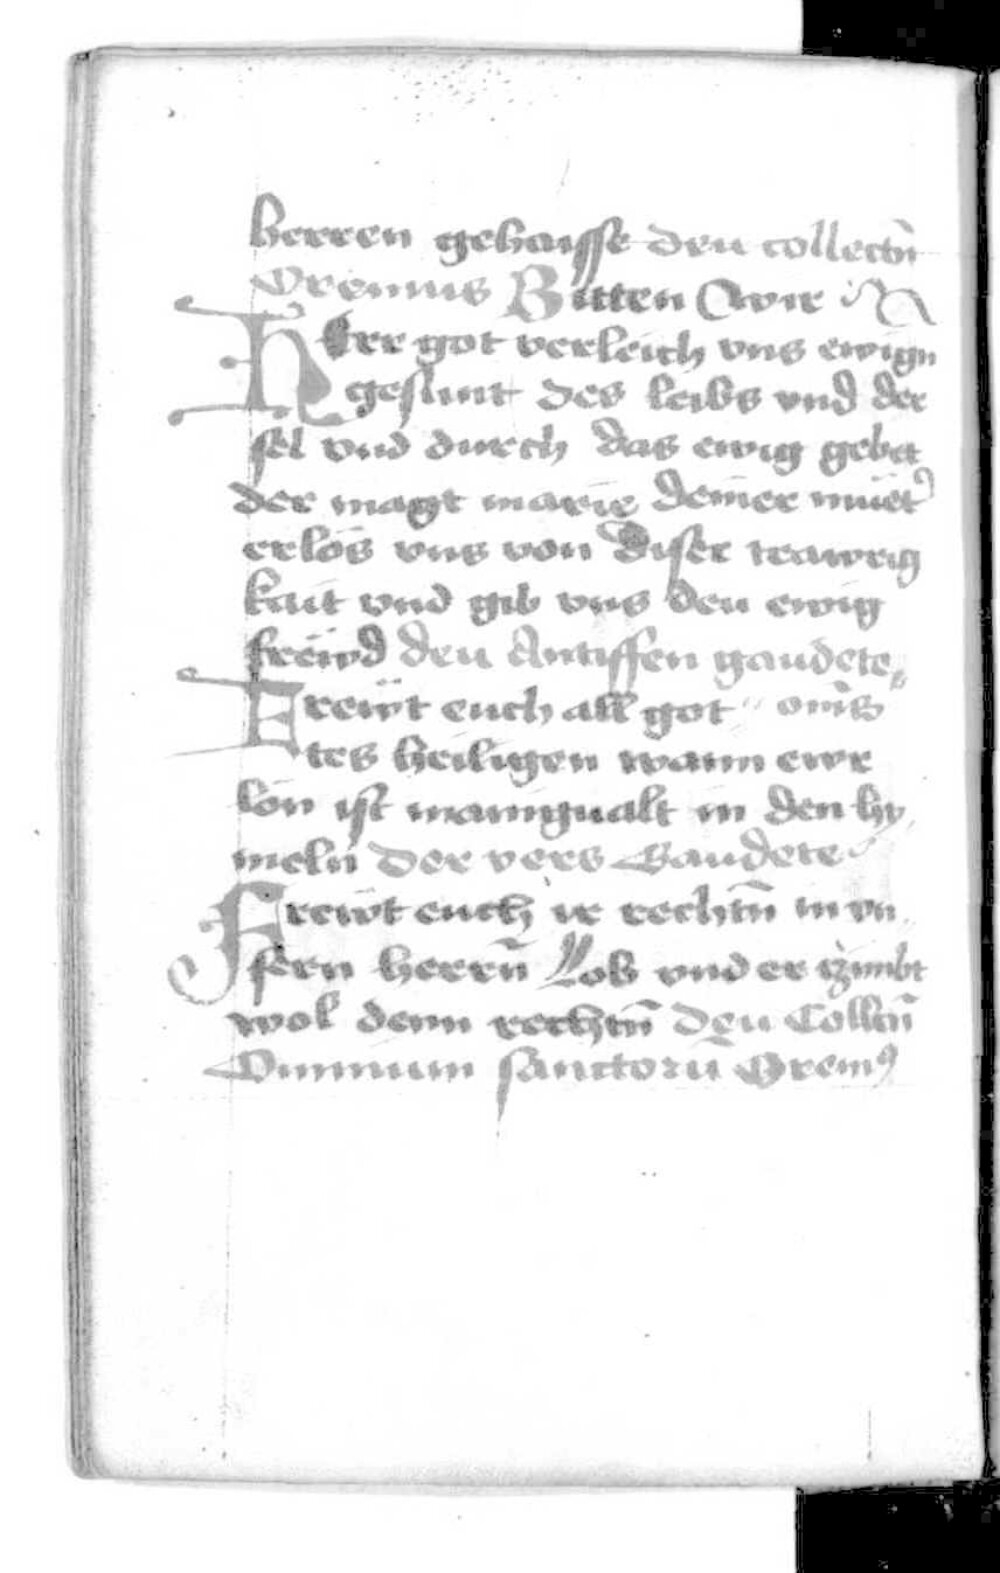 herren gehaisse den collectn̄
Oremus Bitten Wir
Herr got verleich vns ewign
gesunt des leibs vnd der
sel vnd durch das ewig gebet
der magt marie deiner müet᾽
erlös vns von diser trawrig
kait vnd gib vns den ewig
frewd den Antiffen gaudete
Frewt euch all got om̄s
tes heiligen wann ewr
lön ist manigualt in den hy
meln Der vers Gaudete
Frewt euch ir rechtn̄ in vn
sern herrn̄ Lob vnd er czimbt
wol denn rechtn̄ Den Collctn̄
Omnium sanctorū Oremꝰ